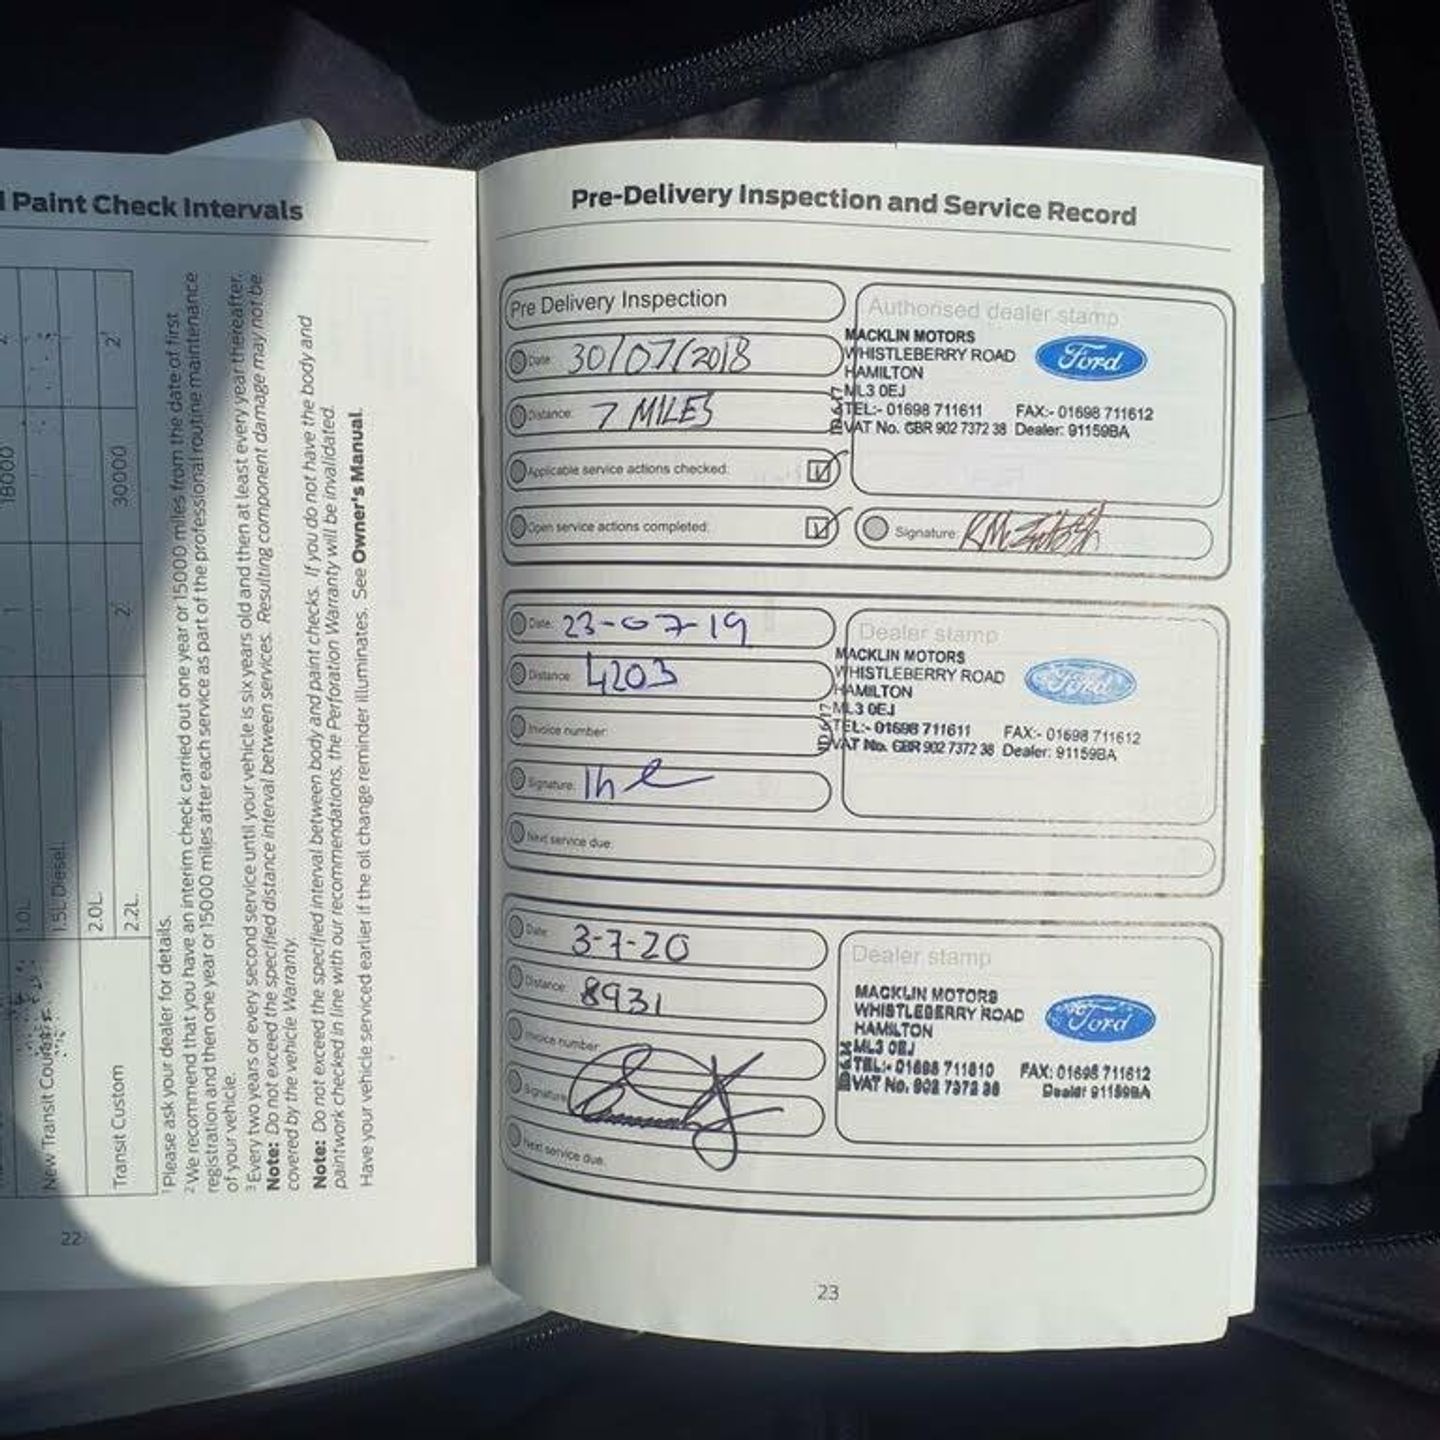 d Paint Check Intervals
18000
1
30000
2
2
1.0L
1.5L Diesel
2.0L
2.2L
New Transit Courier
Transit Custom
1 Please ask your dealer for details.
2 We recommend that you have an interim check carried out one year or 15000 miles from the date of first
registration and then one year or 15000 miles after each service as part of the professional routine maintenance
of your vehicle.
3 Every two years or every second service until your vehicle is six years old and then at least every year thereafter.
Note: Do not exceed the specified distance interval between services. Resulting component damage may not be
covered by the vehicle Warranty.
Note: Do not exceed the specified interval between body and paint checks. If you do not have the body and
paintwork checked in line with our recommendations, the Perforation Warranty will be invalidated.
Have your vehicle serviced earlier if the oil change reminder illuminates. See Owner's Manual.
22
Pre-Delivery Inspection and Service Record
Pre Delivery Inspection
Date: 30/07/2018
Distance: 7 MILES
Applicable service actions checked:
Open service actions completed:
Authorised dealer stamp
MACKLIN MOTORS
WHISTLEBERRY ROAD
HAMILTON
ML3 0EJ
TEL:- 01698 711611 FAX:- 01698 711612
VAT No. GBR 902 7372 38 Dealer: 91159BA
Ford
Signature:
Date: 23-07-19
Distance: 4203
Invoice number:
Signature:
Next service due:
Dealer stamp
MACKLIN MOTORS
WHISTLEBERRY ROAD
HAMILTON
ML3 0EJ
TEL:- 01698 711611 FAX:- 01698 711612
VAT No. GBR 902 7372 38 Dealer: 91159BA
Ford
Date: 3-7-20
Distance: 8931
Invoice number:
Signature:
Next service due:
Dealer stamp
MACKLIN MOTORS
WHISTLEBERRY ROAD
HAMILTON
ML3 0EJ
TEL:- 01698 711610 FAX: 01698 711612
VAT No. 902 7372 38 Dealer 91159BA
Ford
23